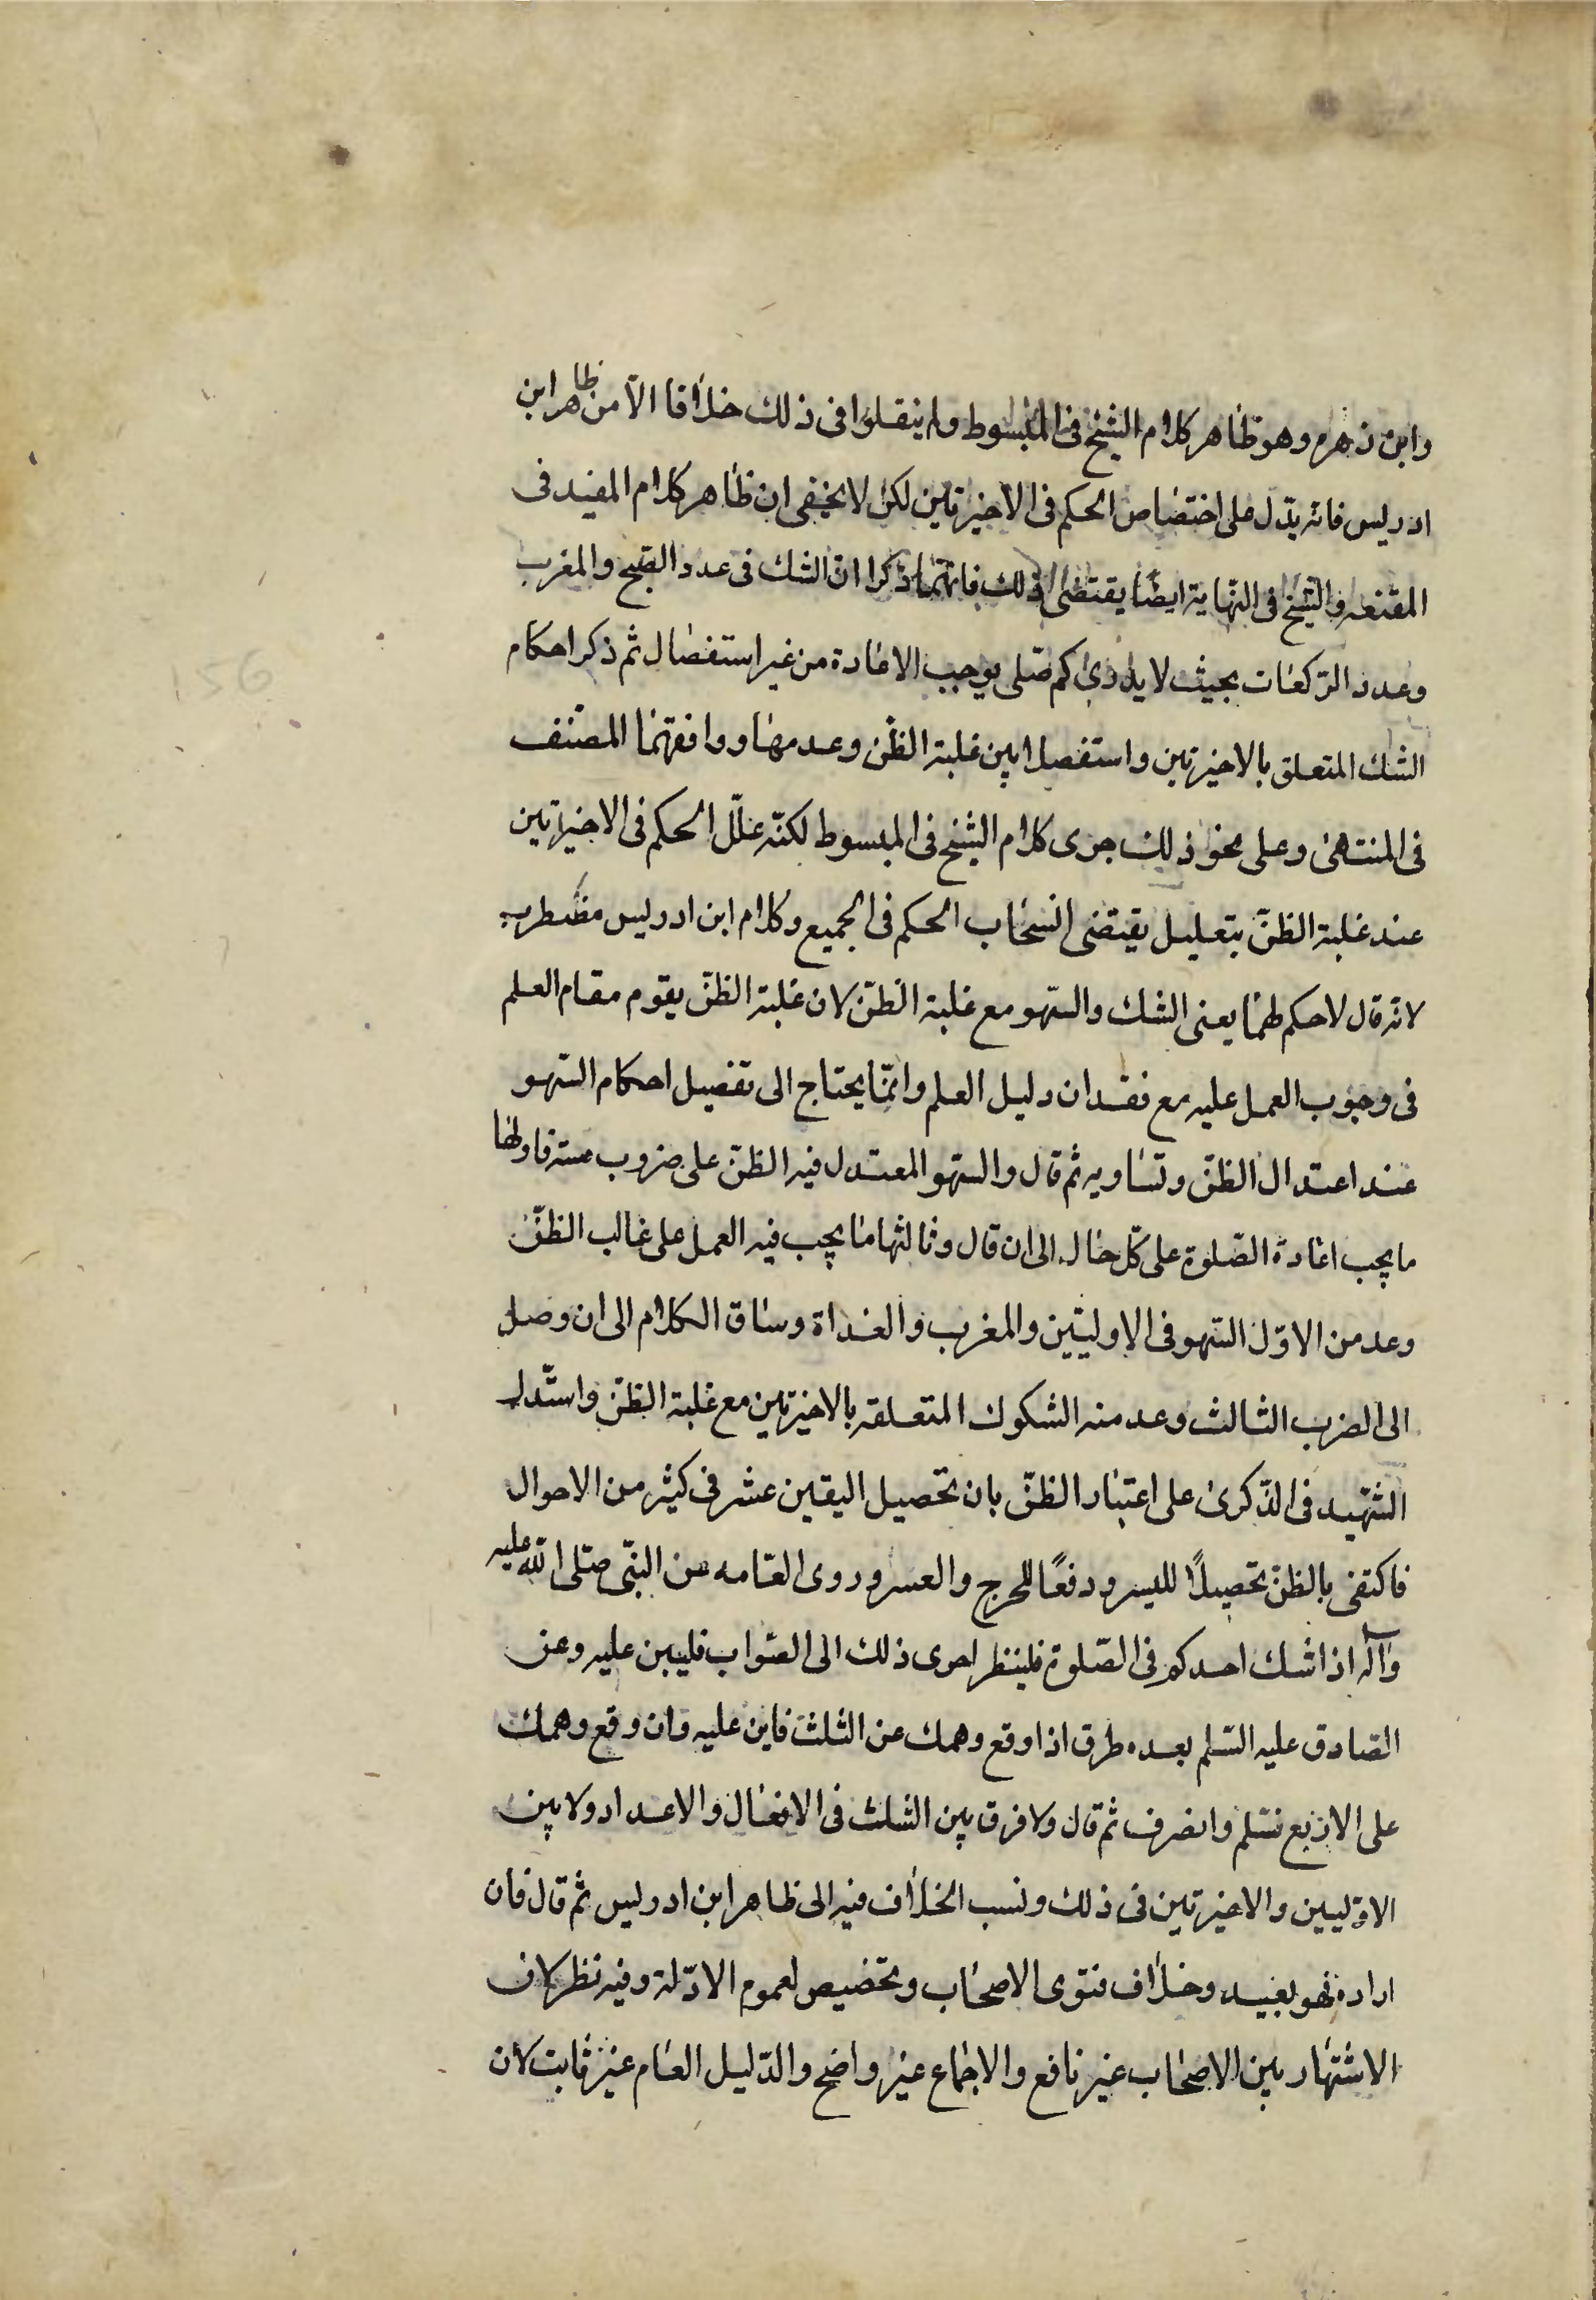 وابن زهره وهو ظاهر كلام الشيخ فى المبسوط ولم ينقلوا فى ذلك خلافا الّا من ظاهر ابن
ادريس فانه يدّل على اختصاص الحكم فى الاخيرتين لكن لا يخفى ان ظاهر كلام المفيد فى
المقنعه والشيخ فى النهاية ايضًا يقتضى ذلك فانهما ذكرا انّ الشك فى عدد الصّبح والمغرب
وعدد الرّكعات بحيث لا يدرى كم صلّى يوجب الاعادة من غير استفصال ثم ذكر احكام
الشك المتعلق بالاخيرتين واستفصلا بين غلبة الظّن وعدمها ووافقهما المصنّف
فى المنتهى وعلى نحو ذلك جرى كلام الشيخ فى المبسوط لكنّه علّل الحكم فى الاخيرتين
عند غلبة الظنّ بتعليل يقتضى انسحاب الحكم فى الجميع وكلام ابن ادريس مضطرب
لانه قال لا حكم لهما يعنى الشك والسّهو مع غلبة الظنّ لان غلبة الظنّ يقوم مقام العلم
فى وجوب العمل عليه مع فقدان دليل العلم وانّما يحتاج الى تفصيل احكام السّهو
عند اعتدال الظنّ وتساويه ثم قال والسّهو المعتدل فيه الظنّ على ضروب ستة فاولها
ما يجب اعادة الصّلوة على كلّ حال الى ان قال وثالثها ما يجب فيه العمل على غالب الظنّ
وعد من الاوّل السّهو فى الاوليتين والمغرب والغداة وساق الكلام الى ان وصل
الى الضرب الثالث وعد منه الشكوك المتعلقه بالاخيرتين مع غلبة الظنّ واستّدل
الشّهيد فى الذّكرى على اعتبار الظنّ بان تحصيل اليقين عسر فى كثير من الاحوال
فاكتفى بالظنّ تحصيلًا لليسر ودفعًا للحرج والعسر وروى العّامه عن النبّى صلّى اللّه عليه
وآله اذا شك احدكم فى الصّلوة فلينظر احرى ذلك الى الصّواب فليبن عليه وعن
الصّادق عليه السّلم بعده طرق اذا وقع وهمك عن الثلث فابن عليه وان وقع وهمك
على الاربع فسّلم وانصرف ثم قال ولا فرق بين الشك فى الافعال والاعداد ولا بين
الاوّليين والاخيرتين فى ذلك ونسب الخلاف فيه الى ظاهر ابن ادريس ثم قال فان
اراده فهو بعيد وخلاف فتوى الاصحاب وتخصيص لعموم الادّلة وفيه نظر لان
الاشتهار بين الاصحاب غير نافع والاجماع غير واضح والدّليل العام غير ثابت لان